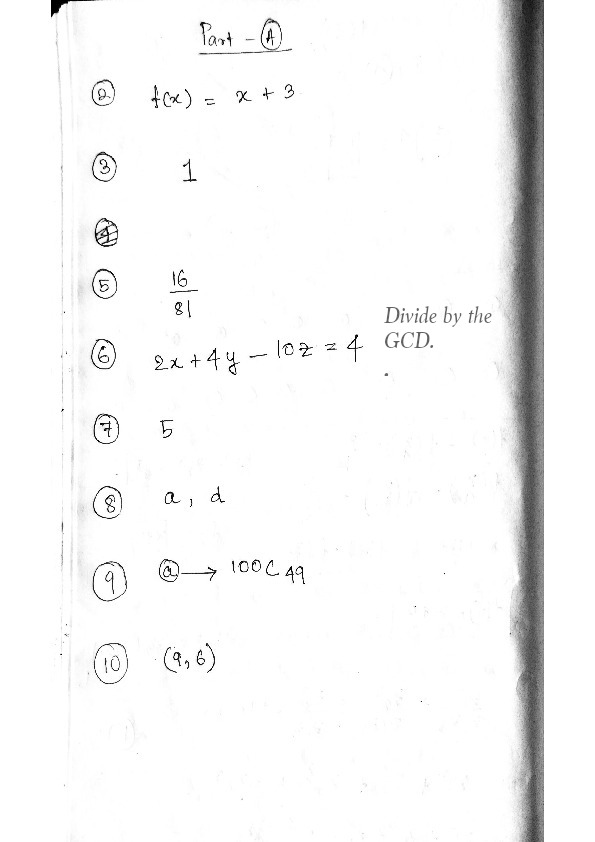 Part - A
2 f(x) = x + 3
3 1
5 16/81
6 2x + 4y - 10z = 4
Divide by the
GCD.
.
7 5
8 a, d
9 a → 100C49
10 (9,6)